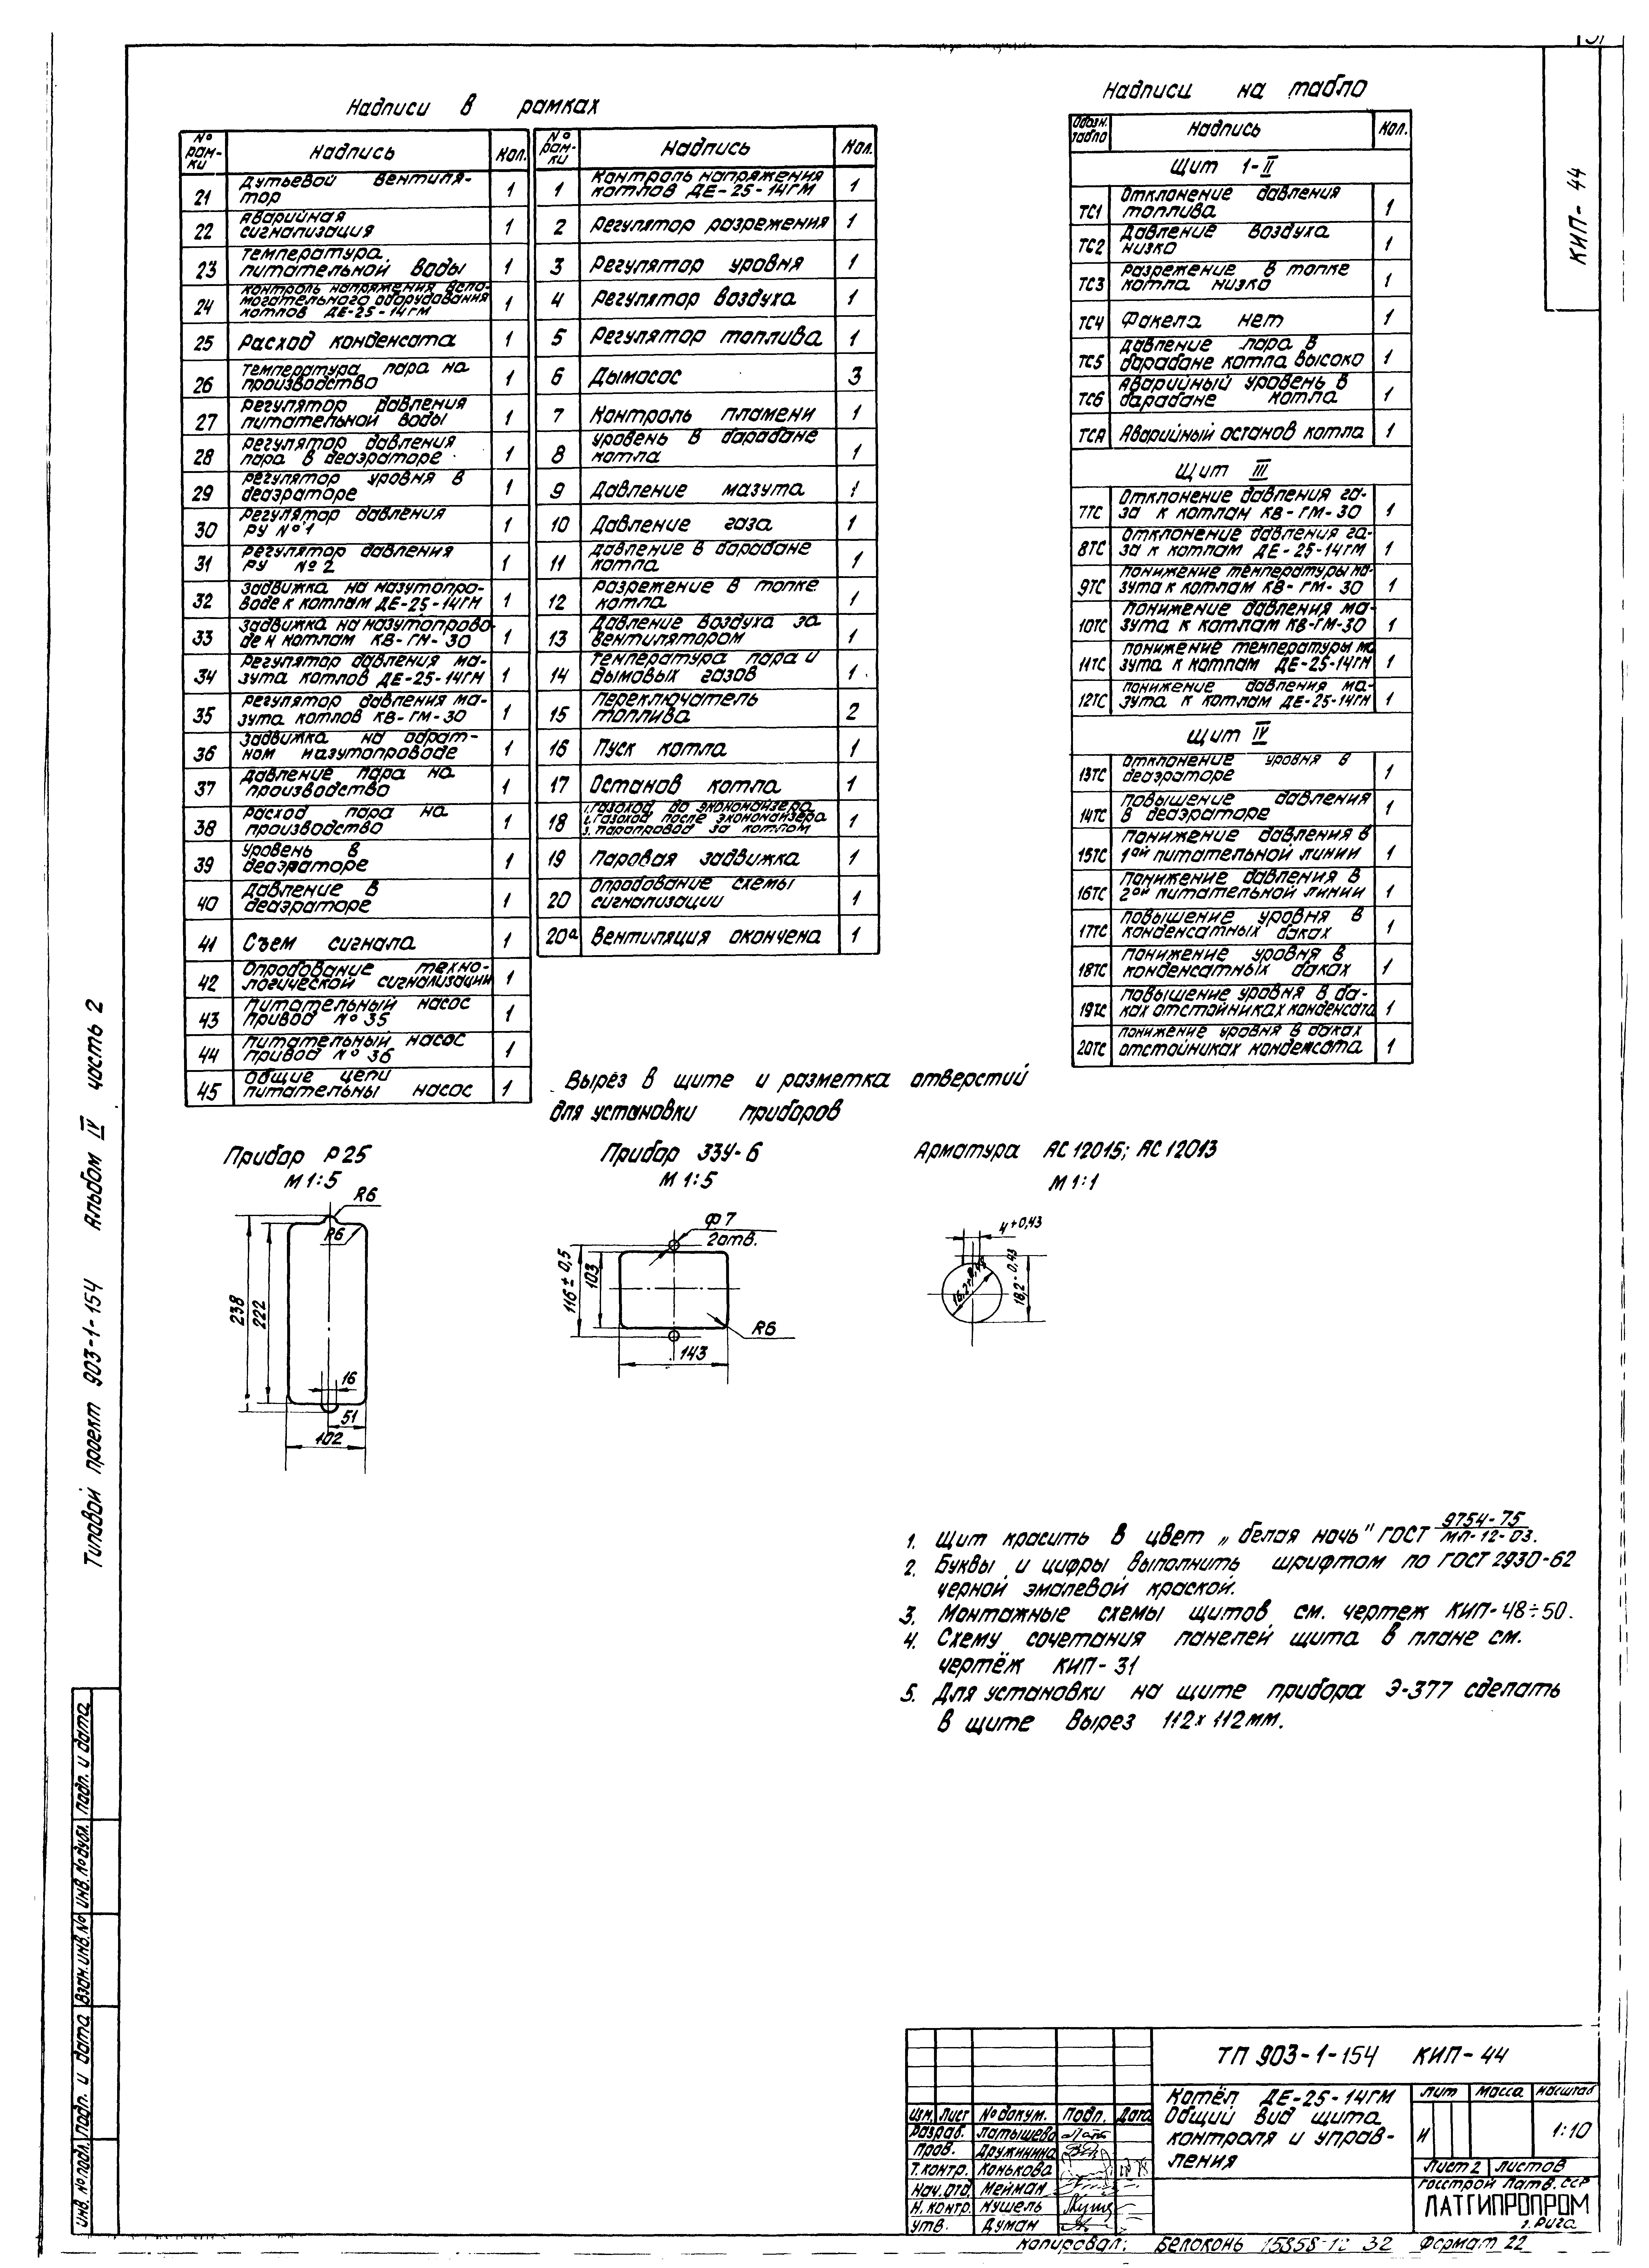 Надписи в рамках
№ рам-ки Надпись Кол.
21 Дутьевой вентиля-
тор 1
22 Аварийная
сигнализация 1
23 Температура
питательной воды 1
24 Контроль напряжения вспо-
могательного оборудования
котлов ДЕ-25-14ГМ 1
25 Расход конденсата 1
26 Температура пара на
производство 1
27 Регулятор давления
питательной воды 1
28 Регулятор давления
пара в деаэраторе 1
29 Регулятор уровня в
деаэраторе 1
30 Регулятор давления
РУ №1 1
31 Регулятор давления
РУ №2 1
32 Задвижка на мазутопро-
воде к котлам ДЕ-25-14ГМ 1
33 Задвижка на мазутопрово-
де к котлам КВ-ГМ-30 1
34 Регулятор давления ма-
зута котлов ДЕ-25-14ГМ 1
35 Регулятор давления ма-
зута котлов КВ-ГМ-30 1
36 Задвижка на обрат-
ном мазутопроводе 1
37 Давление пара на
производство 1
38 Расход пара на
производство 1
39 Уровень в
деаэраторе 1
40 Давление в
деаэраторе 1
41 Съем сигнала 1
42 Опробование техно-
логической сигнализации 1
43 Питательный насос
привод №35 1
44 Питательный насос
привод №36 1
45 Общие цепи
питательны насос 1
№ рам-ки Надпись Кол.
1 Контроль напряжения
котлов ДЕ-25-14ГМ 1
2 Регулятор разрежения 1
3 Регулятор уровня 1
4 Регулятор воздуха 1
5 Регулятор топлива 1
6 Дымосос 3
7 Контроль пламени 1
8 Уровень в барабане
котла 1
9 Давление мазута 1
10 Давление газа 1
11 Давление в барабане
котла 1
12 Разрежение в топке
котла 1
13 Давление воздуха за
вентилятором 1
14 Температура пара и
дымовых газов 1
15 Переключатель
топлива 2
16 Пуск котла 1
17 Останов котла 1
18 1. Газоход до экономайзера
2. Газоход после экономайзера
3. Паропровод за котлом 1
19 Паровая задвижка 1
20 Опробование схемы
сигнализации 1
20а Вентиляция окончена 1
Надписи на табло
Обозн. табло Надпись Кол.
Щит 1-II
ТС1 Отклонение давления
топлива 1
ТС2 Давление воздуха
низко 1
ТС3 Разрежение в топке
котла низко 1
ТС4 Факела нет 1
ТС5 Давление пара в
барабане котла высоко 1
ТС6 Аварийный уровень в
барабане котла 1
ТСА Аварийный останов котла 1
Щит III
7ТС Отклонение давления га-
за к котлам КВ-ГМ-30 1
8ТС Отклонение давления га-
за к котлам ДЕ-25-14ГМ 1
9ТС Понижение температуры ма-
зута к котлам КВ-ГМ-30 1
10ТС Понижение давления ма-
зута к котлам КВ-ГМ-30 1
11ТС Понижение температуры ма
зута к котлам ДЕ-25-14ГМ 1
12ТС Понижение давления ма-
зута к котлам ДЕ-25-14ГМ 1
Щит IV
13ТС Отклонение уровня в
деаэраторе 1
14ТС Повышение давления
в деаэраторе 1
15ТС Понижение давления в
1ой питательной линии 1
16ТС Понижение давления в
2ой питательной линии 1
17ТС Повышение уровня в
конденсатных баках 1
18ТС Понижение уровня в
конденсатных баках 1
19ТС Повышение уровня в ба-
ках отстойниках конденсата 1
20ТС Понижение уровня в баках
отстойниках конденсата 1
КИП-44
Вырез в щите и разметка отверстий
для установки приборов
Прибор Р25
М 1:5
R6
R6
238
222
16
51
102
Прибор ЗЗУ-6
М 1:5
Ф7
2отв.
116±0,5
103
R6
143
Арматура АС12015; АС12013
М 1:1
4+0,43
18,2+0,43
1. Щит красить в цвет „белая ночь" ГОСТ 9754-75
МЛ-12-03.
2. Буквы и цифры выполнить шрифтом по ГОСТ 2930-62
черной эмалевой краской.
3. Монтажные схемы щитов см. чертеж КИП-48÷50.
4. Схему сочетания панелей щита в плане см.
чертёж КИП-31
5. Для установки на щите прибора Э-377 сделать
в щите вырез 112х112мм.
Типовой проект 903-1-154 Альбом IV часть 2
Инв. № подл. Подп. и дата Взам. инв. № Инв. № дубл. Подп. и дата
ТП 903-1-154 КИП-44
Котёл ДЕ-25-14ГМ
Общий вид щита
контроля и управ-
ления
Лит Масса Масштаб
И 1:10
Лист 2 Листов
Госстрой Латв. ССР
ЛАТГИПРОПРОМ
г. Рига
Изм. Лист № докум. Подп. Дата
Разраб. Латышева
Пров. Дружинина
Т.контр. Конькова
Нач.отд. Мейман
Н.контр. Кушель
Утв. Думан
Копировал: Белоконь 32 Формат 22